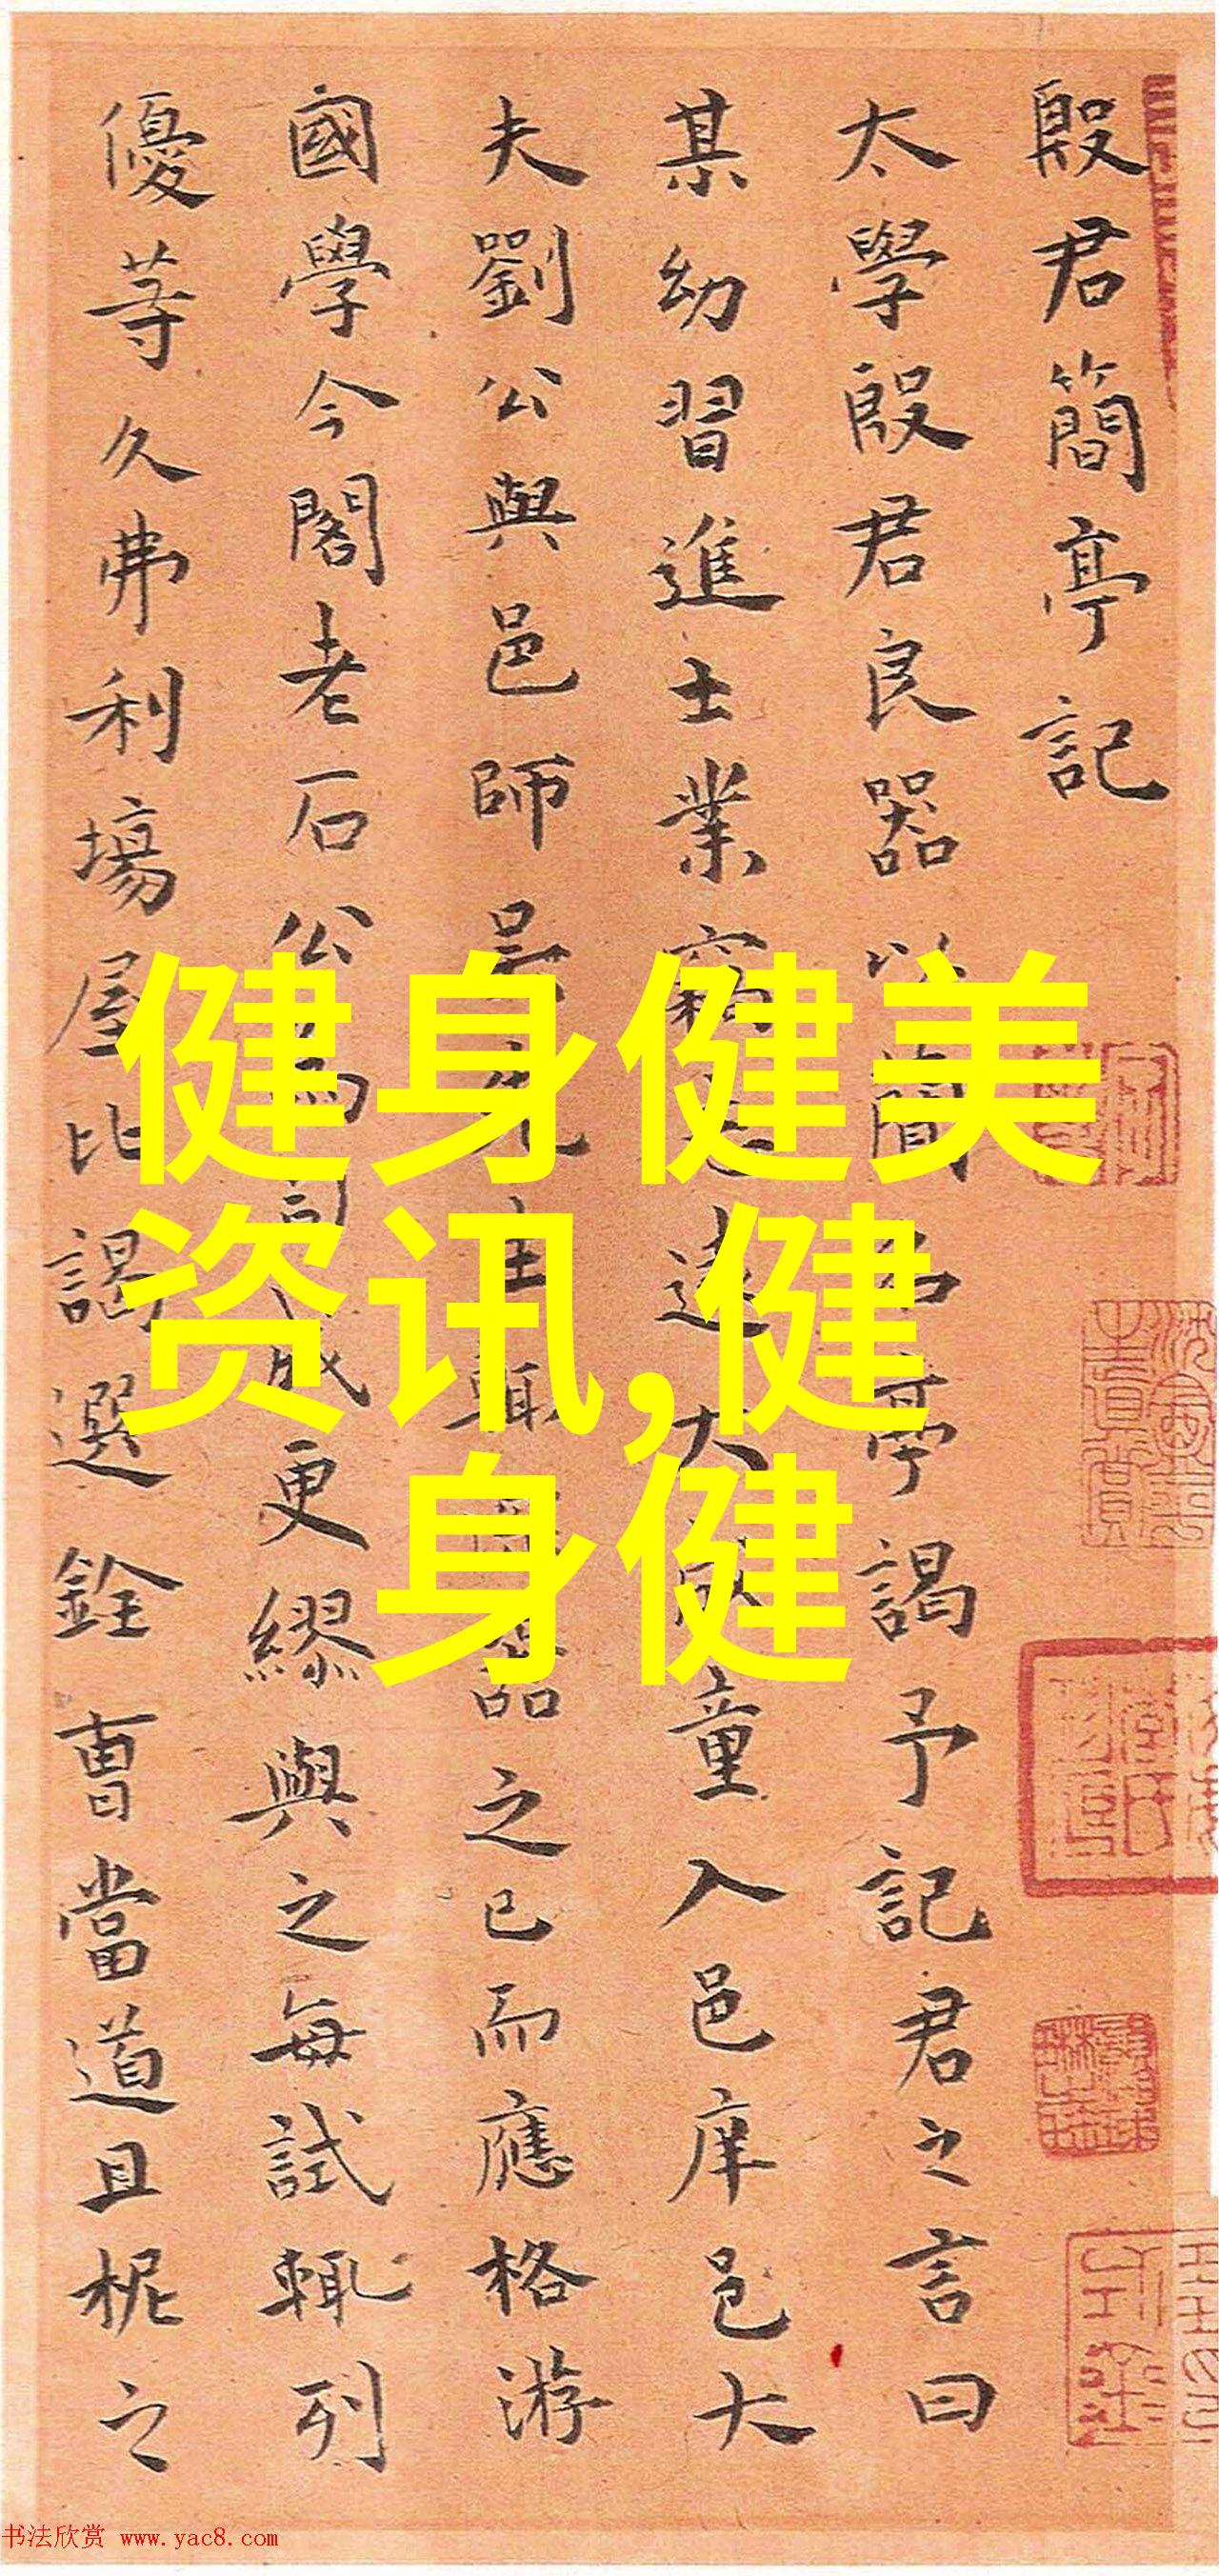 殷君簡亭記
太學殷君良器以簡名亭謁予記君之言曰
某幼習進士業竊志遠大成童入邑庠邑大
夫劉公與邑師吳先生輒器之已而應格游
國學今閣老石公為司成更繆與之每試輒列
優等久弗利場屋比謁選銓曹當道且柅之
健身健美
资讯,健
身健
书法欣赏 www.yac8.com